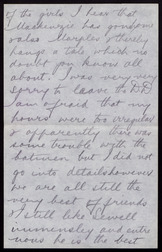 of the girls I hear that
Mackenzie has someone
else's & thereby
hangs a tale which no
doubt you know all
about. I was very very
sorry to leave the D.D.
I am afraid that my
hours were too irregular
& apparently there was
some trouble with the
batman but I did not
go into details however
we are all still the
very best of friends
& still like Sewell
immensely and entre
nous he is the best